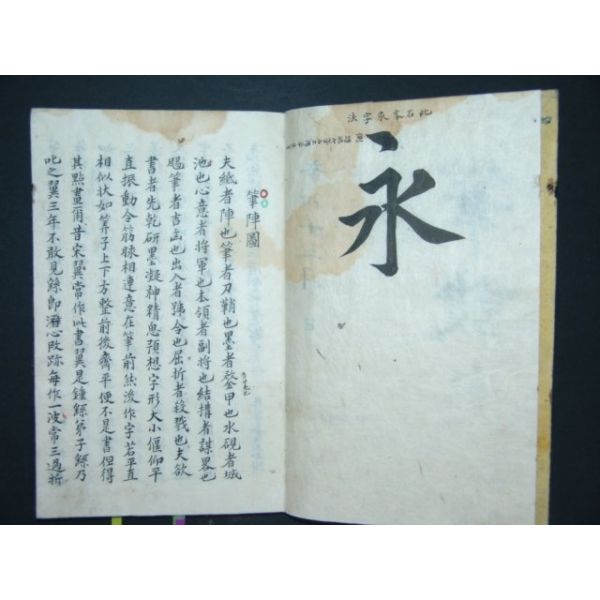 永字法
永
筆陣圖
夫紙者陣也筆者刀鞘也墨者鍪甲也水硯者城
池也心意者將軍也本領者副將也結搆者謀畧也
颺筆者吉凶也出入者號令也屈折者殺戮也夫欲
書者先乾研墨凝神精思預想字形大小偃仰平
直振動令筋脉相連意在筆前然後作字若平直
相似状如筭子上下方整前後齊平便不是書但得
其點畫爾昔宋翼常作此書翼是鍾繇弟子繇乃
叱之翼三年不敢見繇即潛心改跡每作一波常三過折